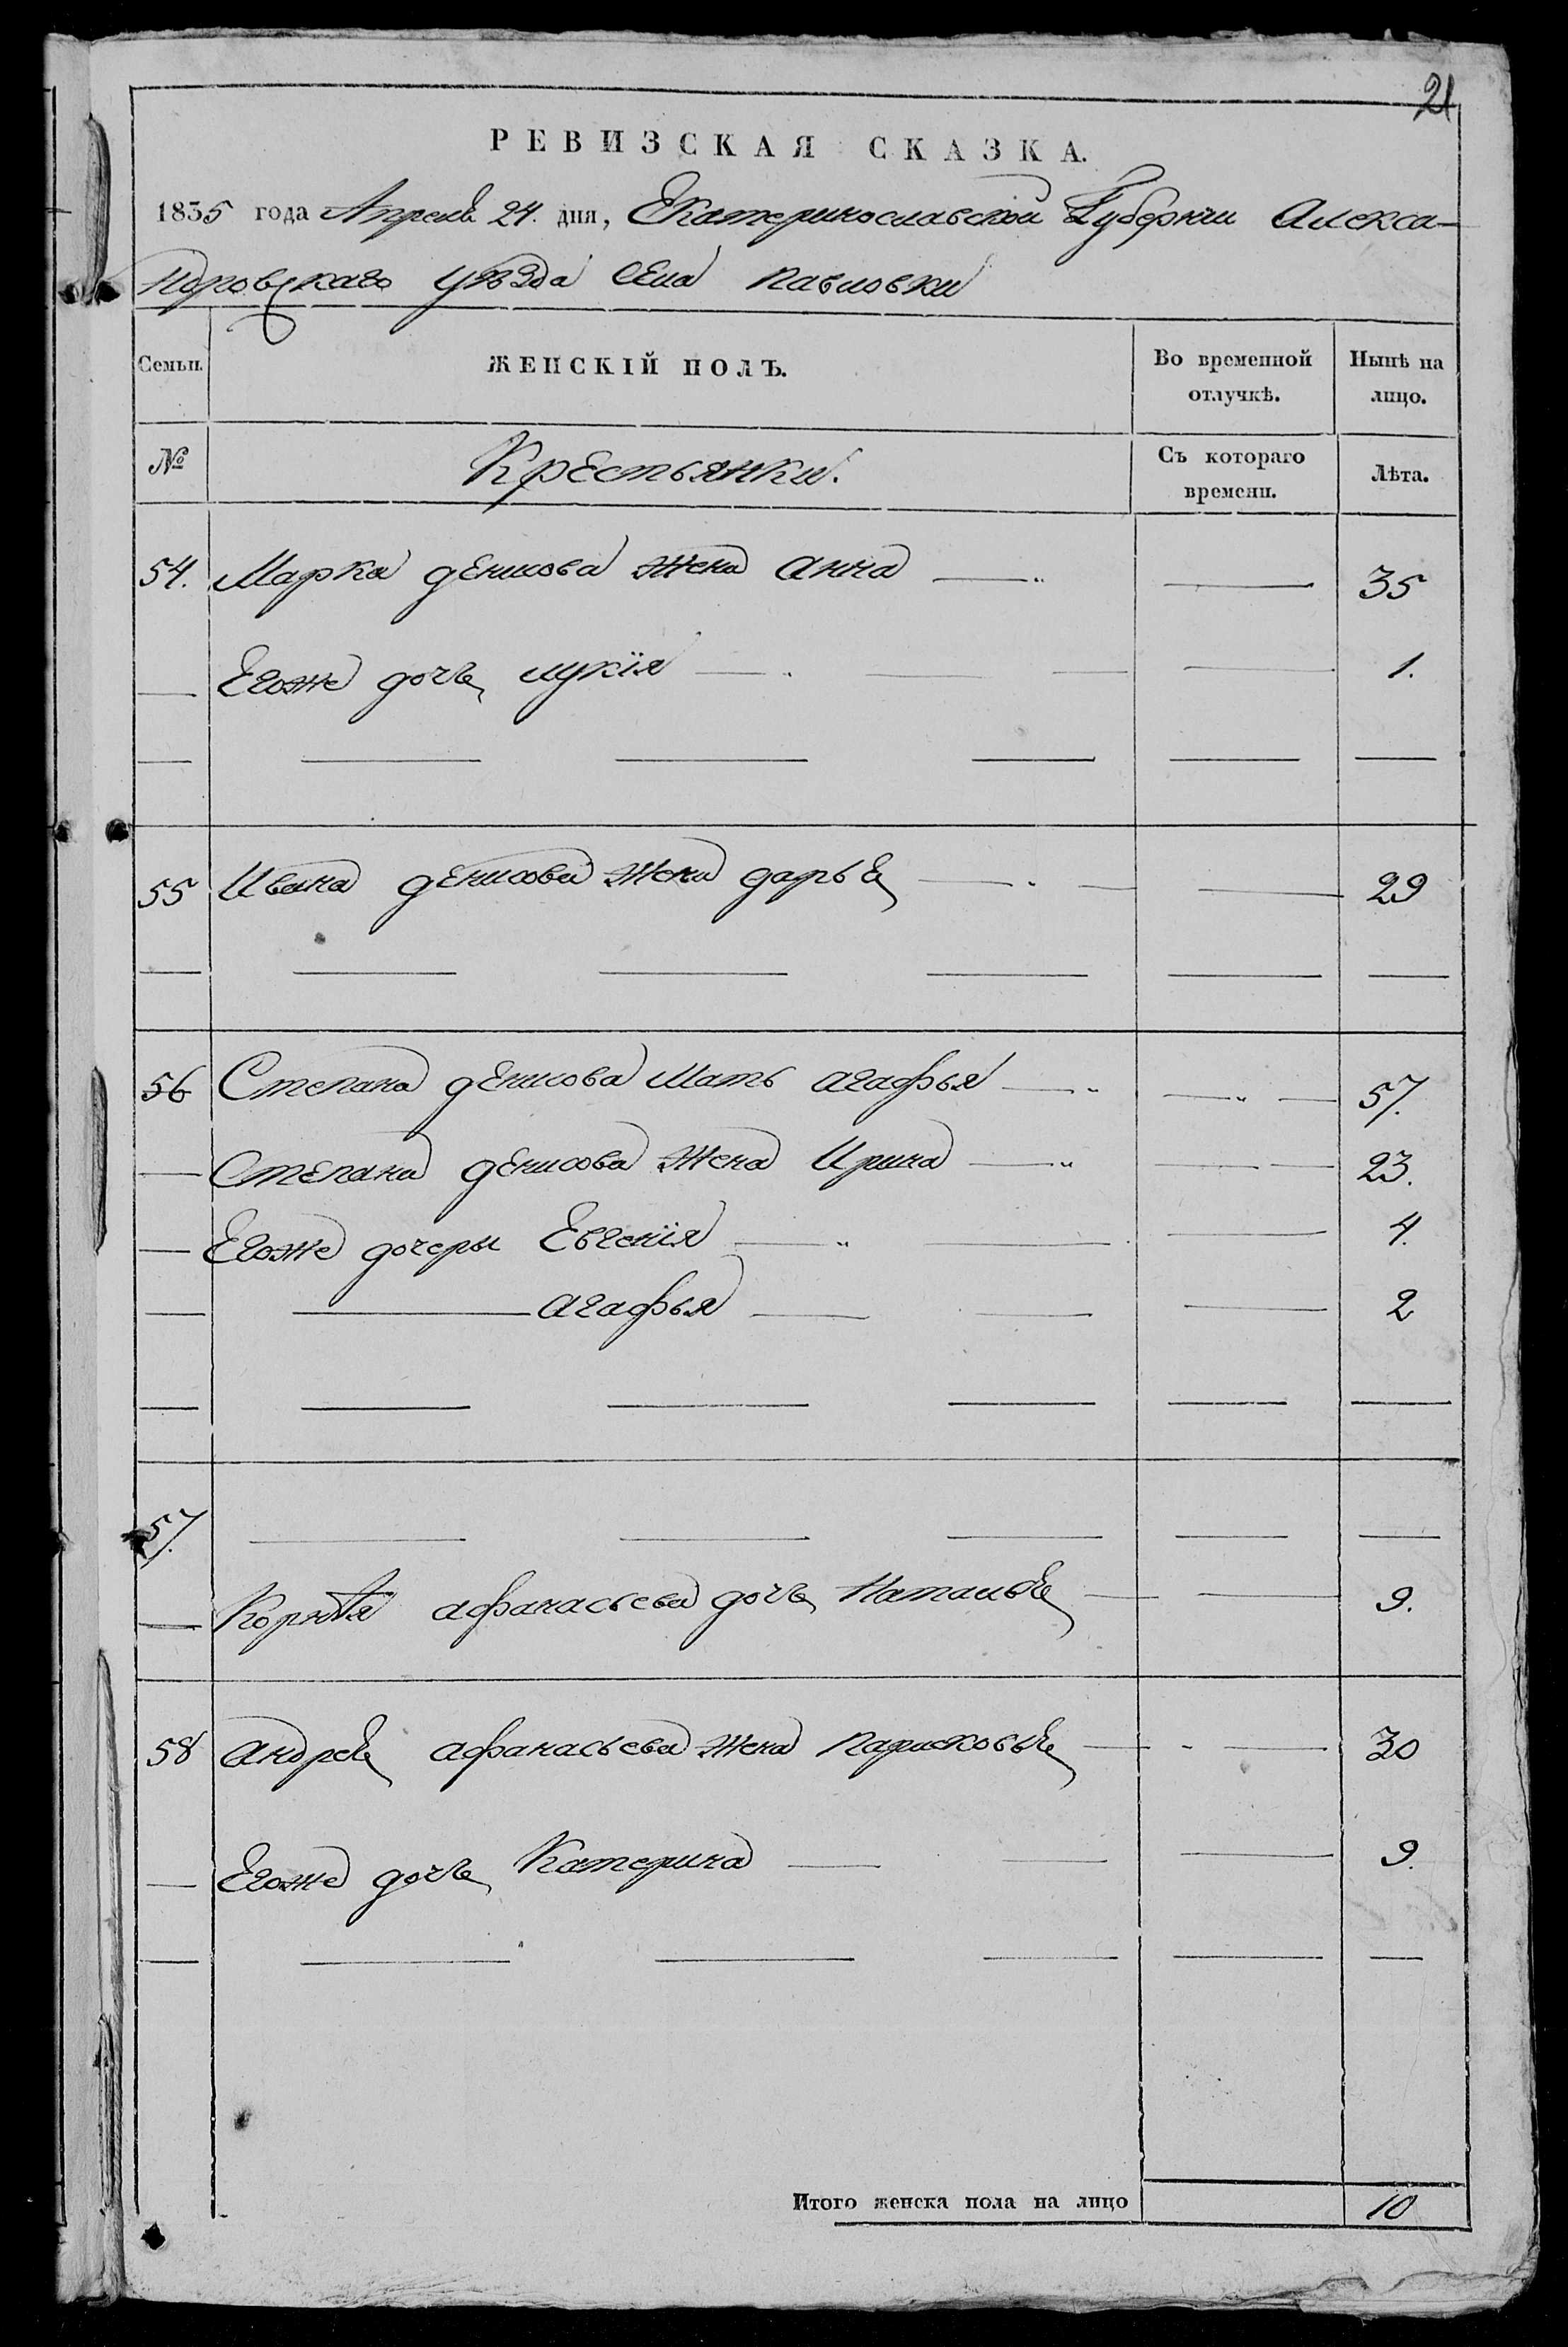 21
РЕВИЗСКАЯ СКАЗКА.
1835 года Апреля 24. дня, Екатеринославской Губернии Алекса-
ндровскаго уѣзда села Павловки
Семьи. ЖЕНСКІЙ ПОЛЪ. Во временной отлучкѣ. Нынѣ на лицо.
№ Крестьянки. Съ котораго времени. Лѣта.
54. Марка денисова жена анна — 35
— Егоже дочь лукїя — 1.
55 Ивана денисова жена дарья — 29
56 Степана денисова мать агафья — 57.
— Степана денисова жена Ирина — 23.
— Егоже дочеры Евгенїя — 4.
— агафья — 2
57.
— Корнѣя афанасьева дочь Наталья — 9.
58 андрея афанасьева жена парасковья — 30
— Егоже дочь Катерина — 9.
Итого женска пола на лицо 10